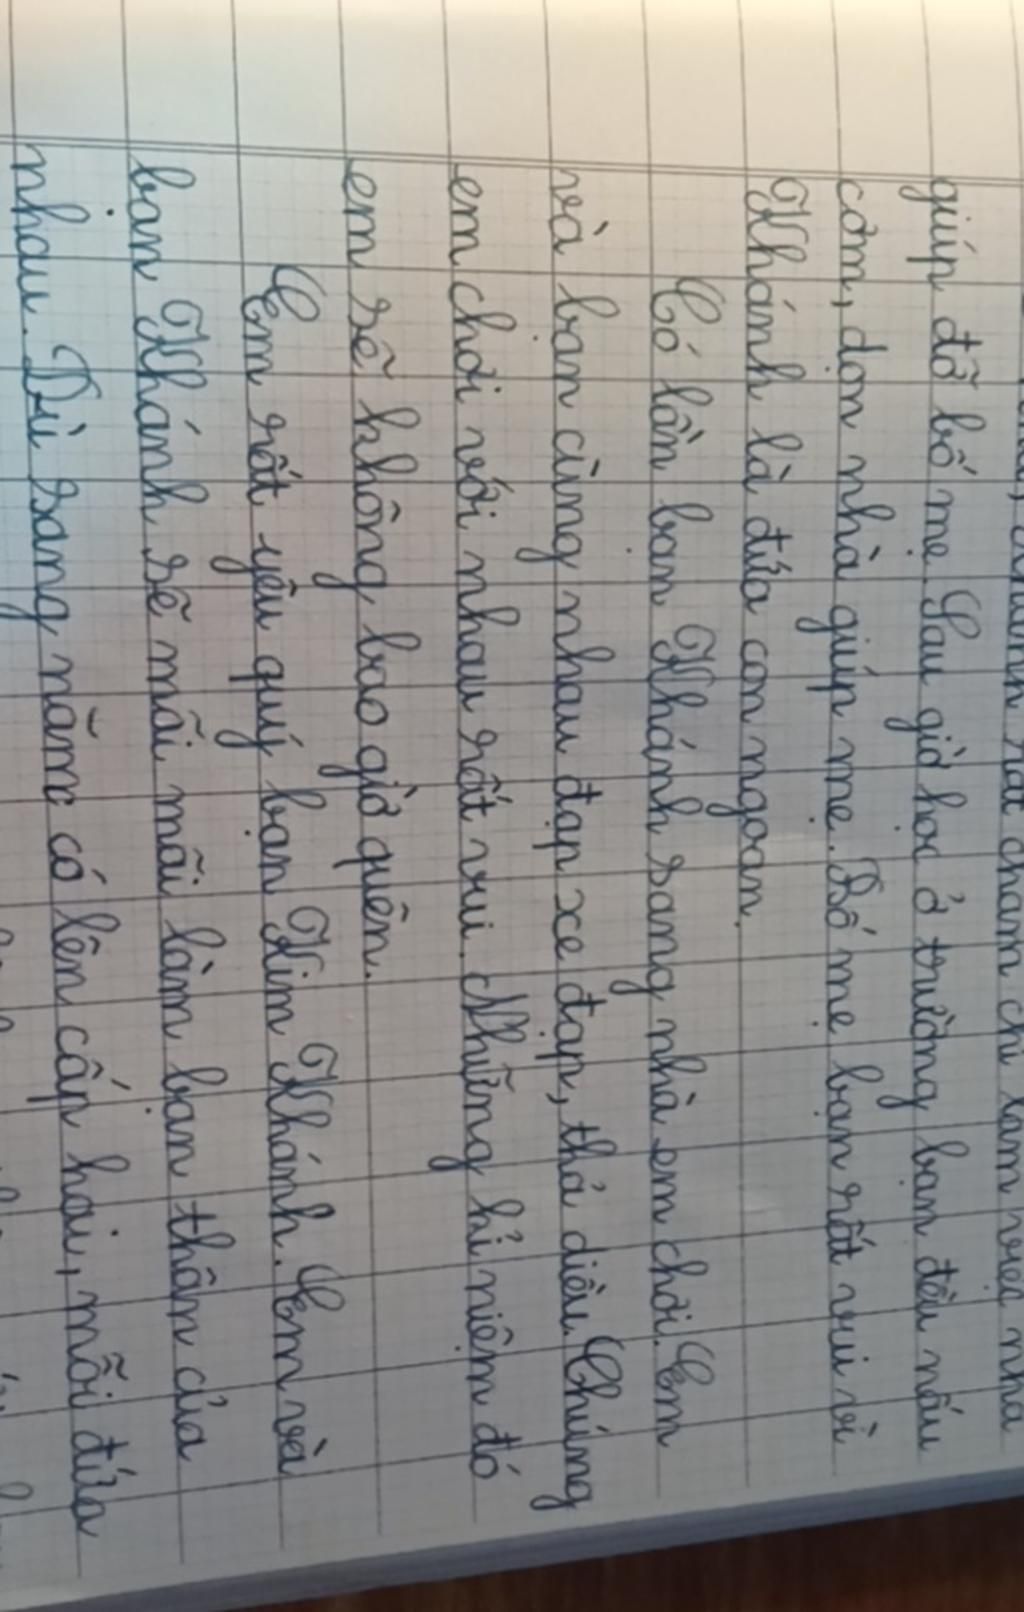 Khánh rất chăm chỉ làm việc nhà
giúp đỡ bố mẹ. Sau giờ học ở trường bạn đều nấu
cơm, dọn nhà giúp mẹ. Bố mẹ bạn rất vui vì
Khánh là đứa con ngoan.
Có lần bạn Khánh sang nhà em chơi. Em
và bạn cùng nhau đạp xe đạp, thả diều. Chúng
em chơi với nhau rất vui. Những kỉ niệm đó
em sẽ không bao giờ quên.
Em rất yêu quý bạn Kim Khánh. Em và
bạn Khánh sẽ mãi mãi làm bạn thân của
nhau. Dù sang năm có lên cấp hai, mỗi đứa